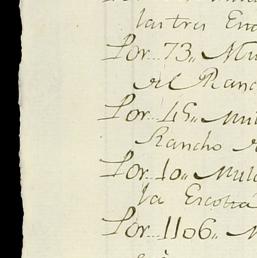 las tres
Por 73,, Mu
del Ranc
Por 45,, Mul
Rancho
Por 10,, Mula
la Escolta
Por 1106,, M